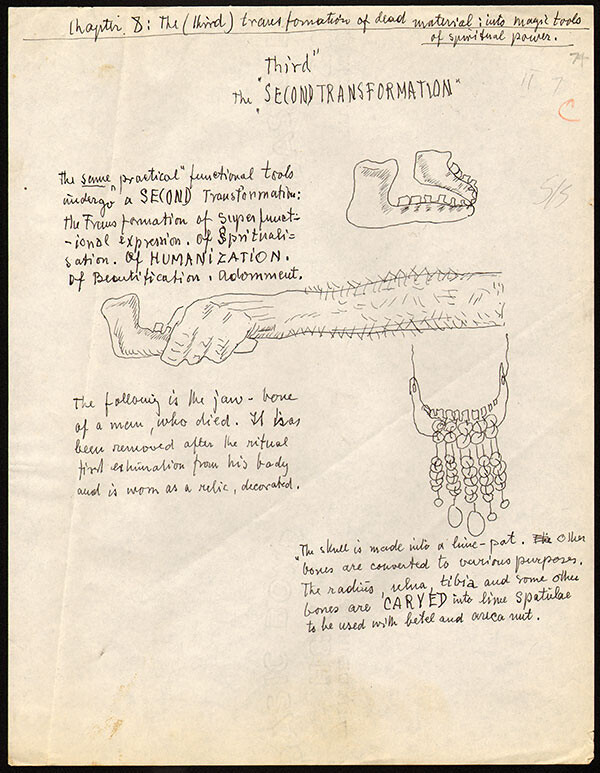 Chapter 8: The (third) transformation of dead material: into magic tools
of spiritual power.
third"
the "SECOND TRANSFORMATION"
II 7
C
5/5
The same "practical" functional tools
undergo a SECOND Transformation:
the Transformation of Superfunct-
-ional expression. Of Spirituali-
sation. Of HUMANIZATION.
Of Beautification. Adornment.
The following is the jaw-bone
of a man, who died. It has
been removed after the ritual
first exhumation from his body
and is worn as a relic, decorated.
"The skull is made into a lime-pot. Other
bones are converted to various purposes.
The radius, ulna, tibia and some other
bones are CARVED into lime spatulae
to be used with betel and areca nut.